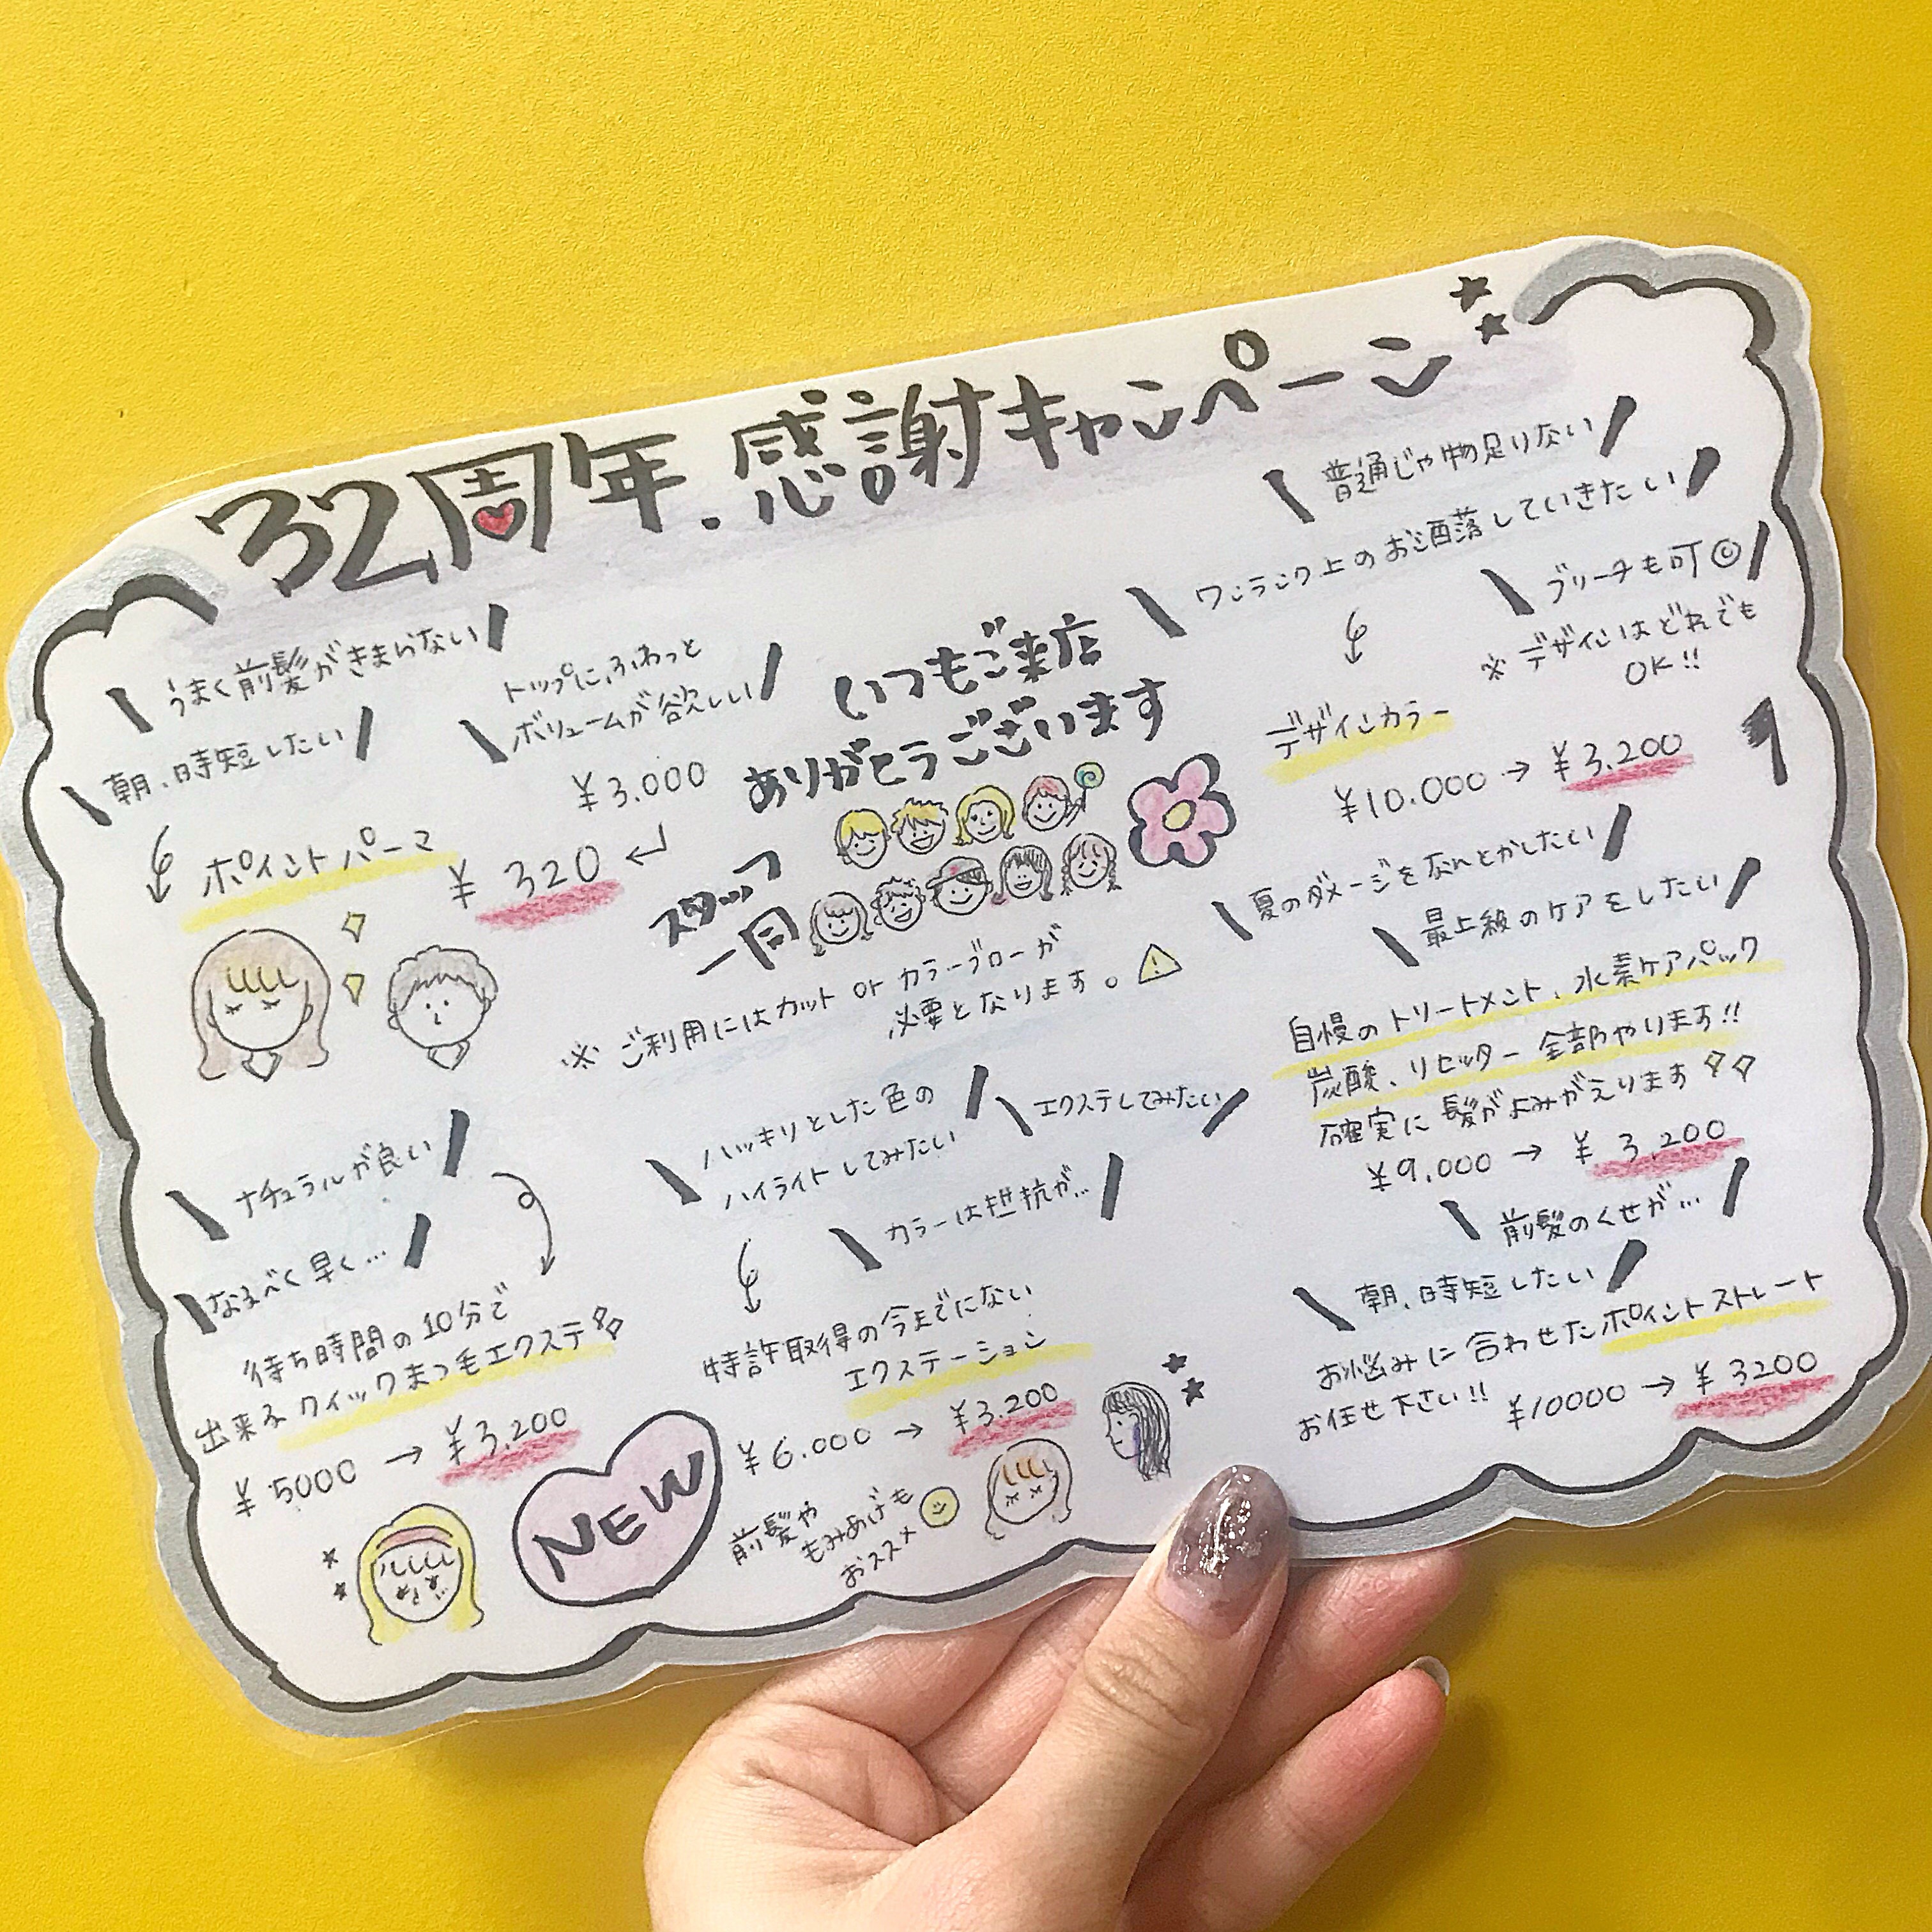 32周年.感謝キャンペーン
うまく前髪がきまらない
朝、時短したい
トップにふわっと
ボリュームが欲しい
¥3.000
ポイントパーマ
¥320
いつもご来店
ありがとうございます
スタッフ
一同
※ご利用にはカット or カラーブローが
必要となります。
!
普通じゃ物足りない
ワンランク上のお洒落していきたい
ブリーチも可◎
※デザインはどれでも
OK!!
デザインカラー
¥10.000→¥3.200
夏のダメージをなんとかしたい
最上級のケアをしたい
自慢のトリートメント、水素ケアパック
炭酸、リセッター全部やります!!
確実に髪がよみがえります
¥9,000→¥3,200
前髪のくせが…
朝、時短したい
お悩みに合わせたポイントストレート
お任せ下さい!!
¥10000→¥3200
ナチュラルが良い
なるべく早く…
待ち時間の10分で
出来るクイックまつ毛エクステ
¥5000→¥3,200
NEW
ハッキリとした色の
ハイライトしてみたい
エクステしてみたい
カラーは抵抗が…
特許取得の今までにない
エクステーション
¥6.000→¥3.200
前髪や
もみあげも
おススメ